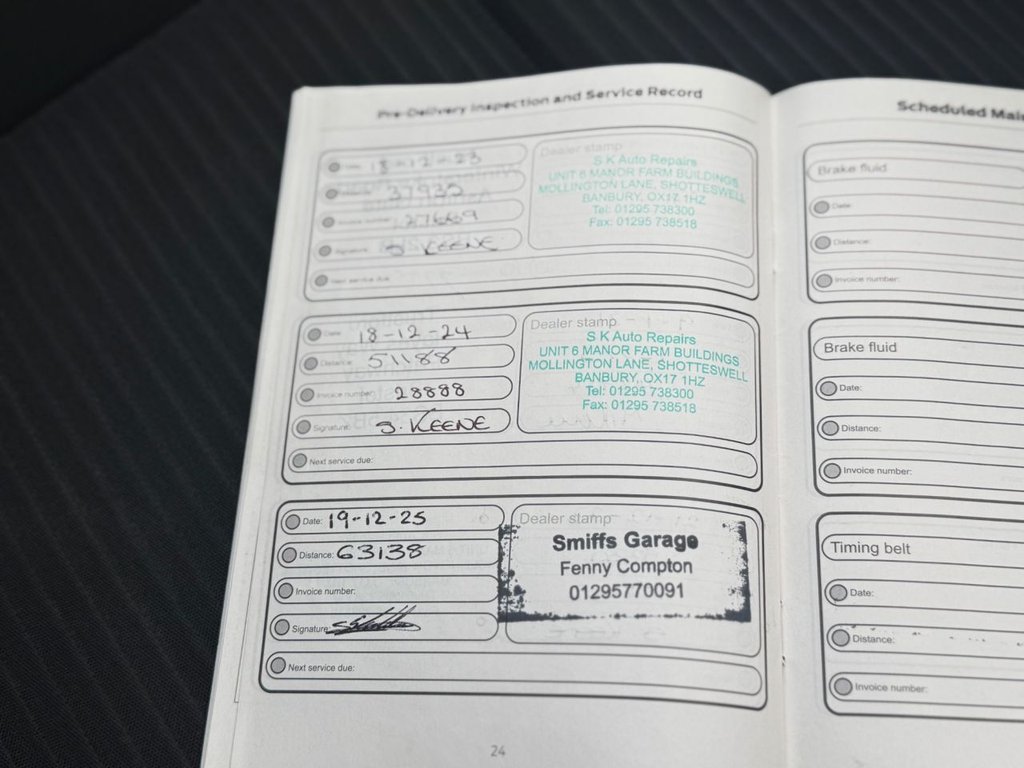 Pre-Delivery Inspection and Service Record
Date: 18-12-23
37932
Invoice number: 27669
Signature: J KEENE
Next service due:
Dealer stamp
S K Auto Repairs
UNIT 6 MANOR FARM BUILDINGS
MOLLINGTON LANE, SHOTTESWELL
BANBURY, OX17 1HZ
Tel: 01295 738300
Fax: 01295 738518
Date: 18-12-24
Distance: 51188
Invoice number: 28888
Signature: J. KEENE
Next service due:
Dealer stamp
S K Auto Repairs
UNIT 6 MANOR FARM BUILDINGS
MOLLINGTON LANE, SHOTTESWELL
BANBURY, OX17 1HZ
Tel: 01295 738300
Fax: 01295 738518
Date: 19-12-25
Distance: 63138
Invoice number:
Signature:
Next service due:
Dealer stamp
Smiffs Garage
Fenny Compton
01295770091
24
Scheduled
Brake fluid
Date:
Distance:
Invoice number:
Brake fluid
Date:
Distance:
Invoice number:
Timing belt
Date:
Distance:
Invoice number: